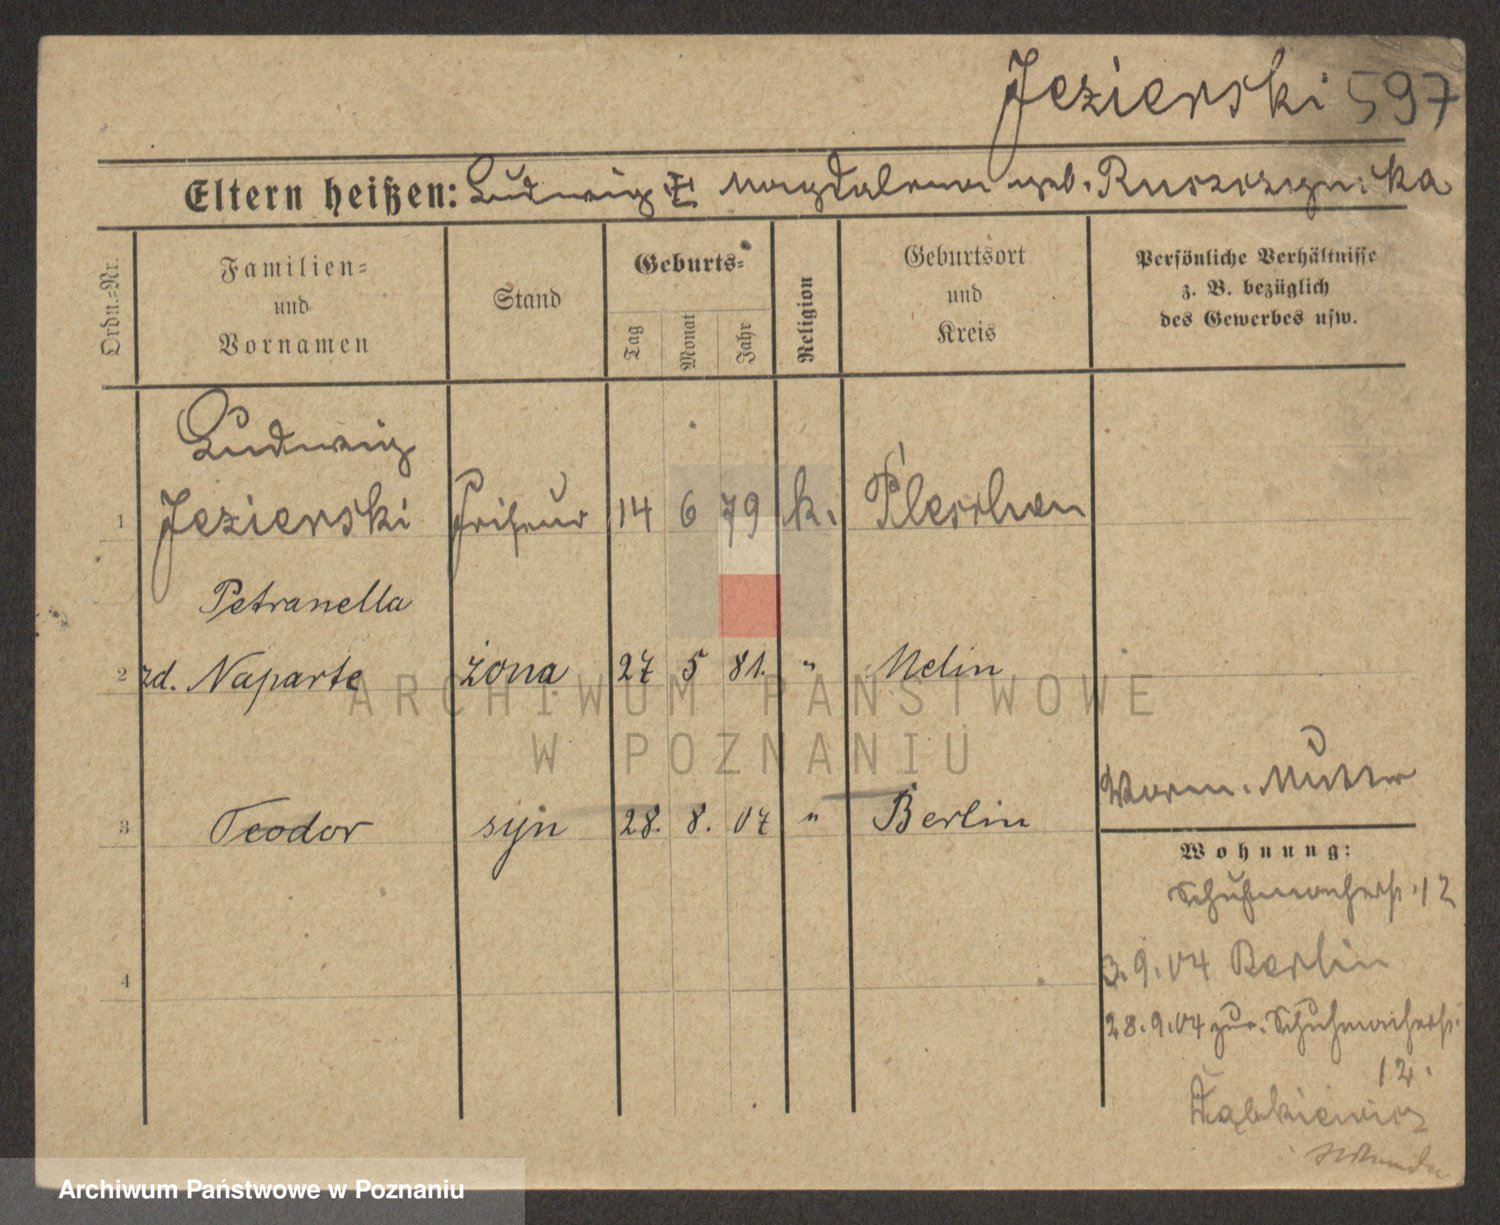 Jezierski 597
Eltern heißen: Ludwig & Magdalena geb. Ruszczynska
Ordn.-Nr.
Familien-
und
Vornamen
Stand
Geburts-
Tag
Monat
Jahr
Religion
Geburtsort
und
Kreis
Persönliche Verhältnisse
z. B. bezüglich
des Gewerbes usw.
Ludwig
1 Jezierski Friseur 14 6 79 k. Pleschen
Petranella
2 zd. Naparte żona 27 5 81. " Melin
3 Teodor syn 28. 8. 07 " Berlin
Mutter
Wohnung:
Schuhmacherst. 12
3.9.04 Berlin
28.9.04 zur. Schuhmacherst.
12.
4
ARCHIWUM PAŃSTWOWE
W POZNANIU
Archiwum Państwowe w Poznaniu